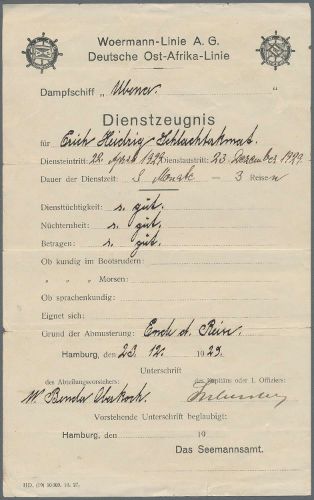 Woermann-Linie A. G.
Deutsche Ost-Afrika-Linie
Dampfschiff „ Ubena
Dienstzeugnis
für Erich
Diensteintritt: 22. April Dienstaustritt: 23. Dezember
Dauer der Dienstzeit: 8 Monate – 3 Reisen
Diensttüchtigkeit: s. gut.
Nüchternheit: s. gut.
Betragen: s. gut.
Ob kundig im Bootsrudern:
„ „ „ Morsen:
Ob sprachenkundig:
Eignet sich:
Grund der Abmusterung: Ende d. Reise.
Hamburg, den 23. 12. 1929.
Unterschrift
des Abteilungsvorstehers: des Kapitäns oder 1. Offiziers:
W. Oberkoch.
Vorstehende Unterschrift beglaubigt:
Hamburg, den 19
Das Seemannsamt.